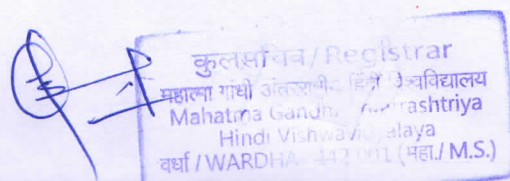 कुलसचिव / Registrar
महात्मा गांधी अंतरराष्ट्रीय हिंदी विश्वविद्यालय
Mahatma Gandhi rashtriya
Hindi Vishwavidyalaya
वर्धा / WARDHA - 442 001 (महा./ M.S.)